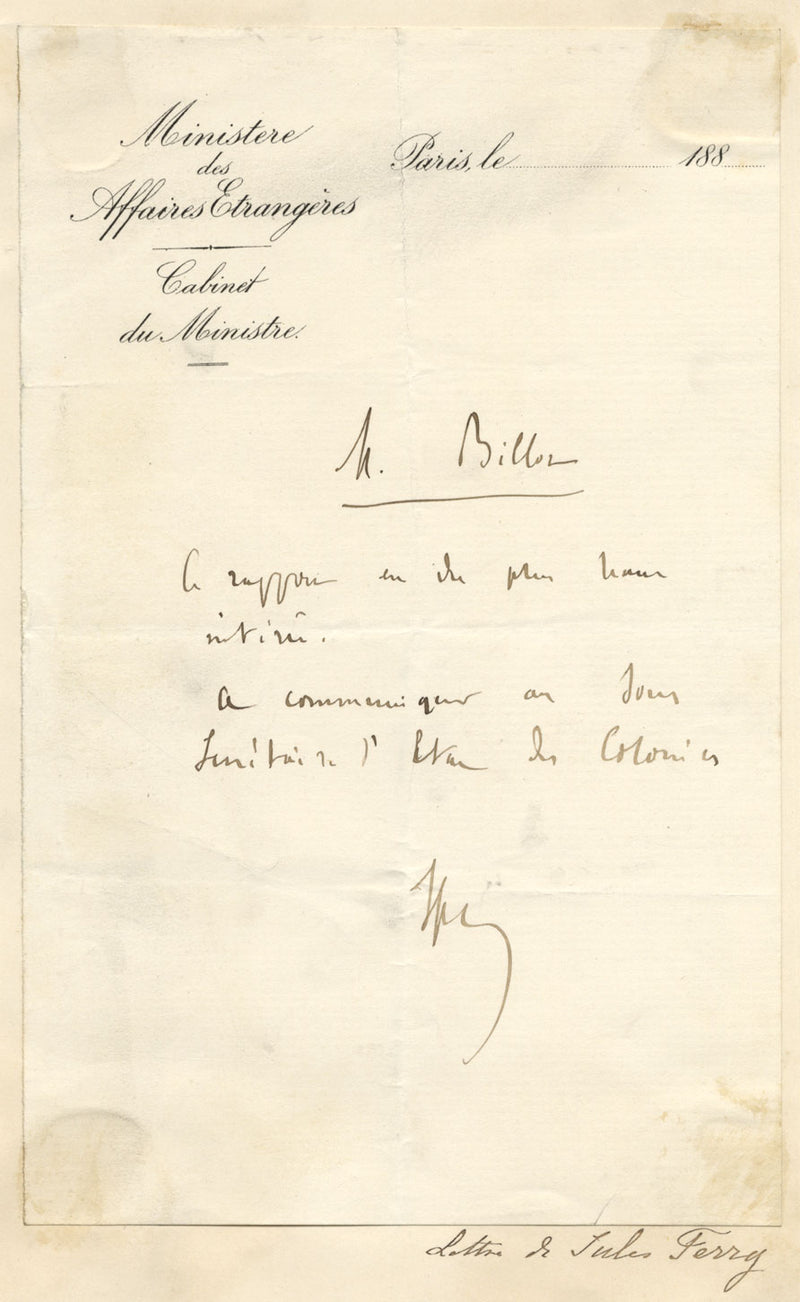 Ministere
des
Affaires Etrangères
Cabinet
du Ministre.
Paris, le 188
M. Billot
Ce rapport est du plus haut
intérêt.
A communiquer au Sous
Secrétaire d'Etat des Colonies
Lettre de Jules Ferry